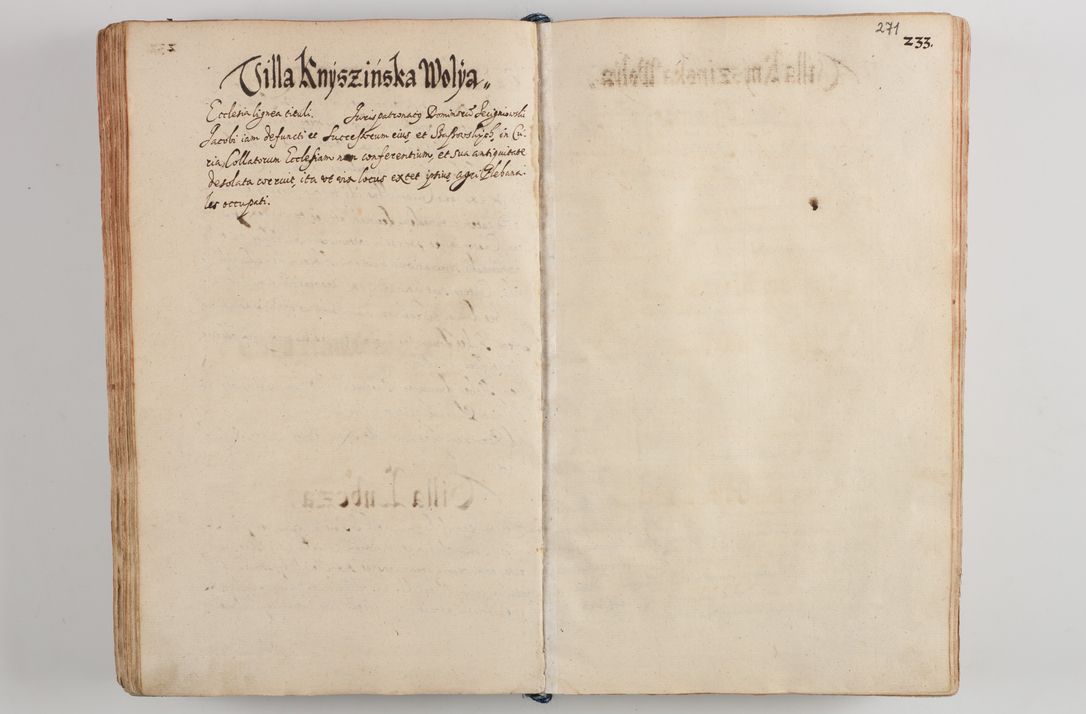 Villa Knyszińska Wolya„
Ecclesia lignea tituli. Juris patronatq Dominorū
Jacobi iam defuncti et Successorum eius et in Cu
ria, Collatorum Ecclesiam non conferentium, et sua antiquitate
desolata corruit, ita vt vix locus extet ipsius agri Plebana.
les occupati.
271
233.